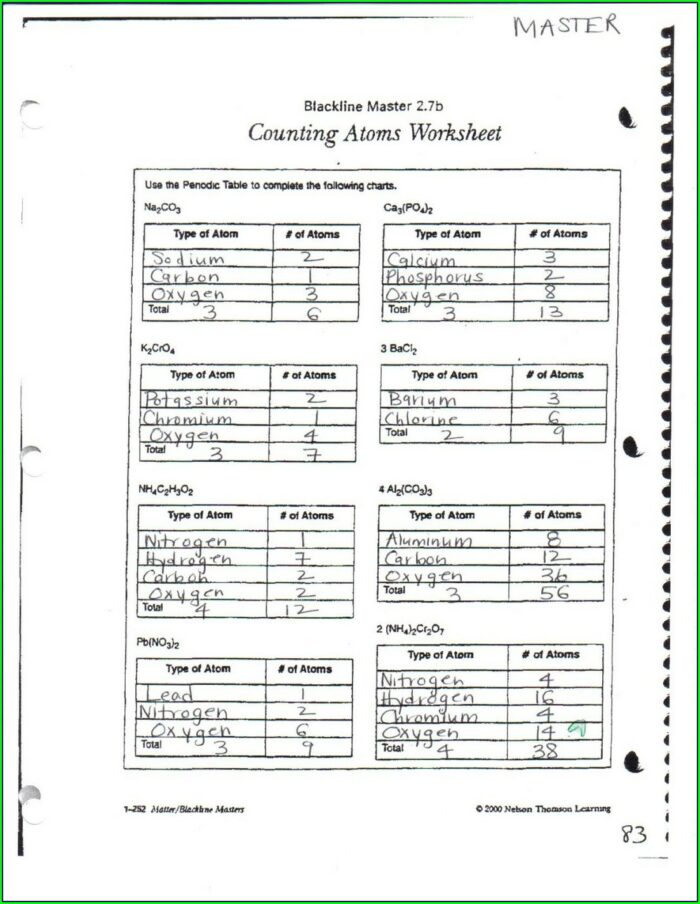 MASTER
Blackline Master 2.7b
Counting Atoms Worksheet
Use the Periodic Table to complete the following charts.
Na₂CO₃
Type of Atom # of Atoms
Sodium 2
Carbon 1
Oxygen 3
Total 3 6
Ca₃(PO₄)₂
Type of Atom # of Atoms
Calcium 3
Phosphorus 2
Oxygen 8
Total 3 13
K₂CrO₄
Type of Atom # of Atoms
Potassium 2
Chromium 1
Oxygen 4
Total 3 7
3 BaCl₂
Type of Atom # of Atoms
Barium 3
Chlorine 6
Total 2 9
NH₄C₂H₃O₂
Type of Atom # of Atoms
Nitrogen 1
Hydrogen 7
Carbon 2
Oxygen 2
Total 4 12
4 Al₂(CO₃)₃
Type of Atom # of Atoms
Aluminum 8
Carbon 12
Oxygen 36
Total 3 56
Pb(NO₃)₂
Type of Atom # of Atoms
Lead 1
Nitrogen 2
Oxygen 6
Total 3 9
2 (NH₄)₂Cr₂O₇
Type of Atom # of Atoms
Nitrogen 4
Hydrogen 16
Chromium 4
Oxygen 14
Total 4 38
1–252 Matter/Blackline Masters
© 2000 Nelson Thomson Learning
83